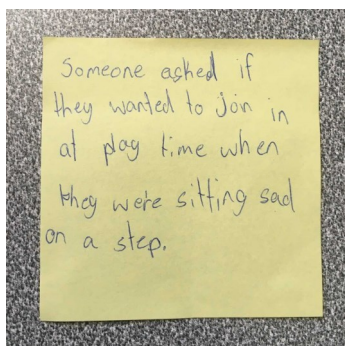 Someone asked if
they wanted to join in
at play time when
they were sitting sad
on a step.